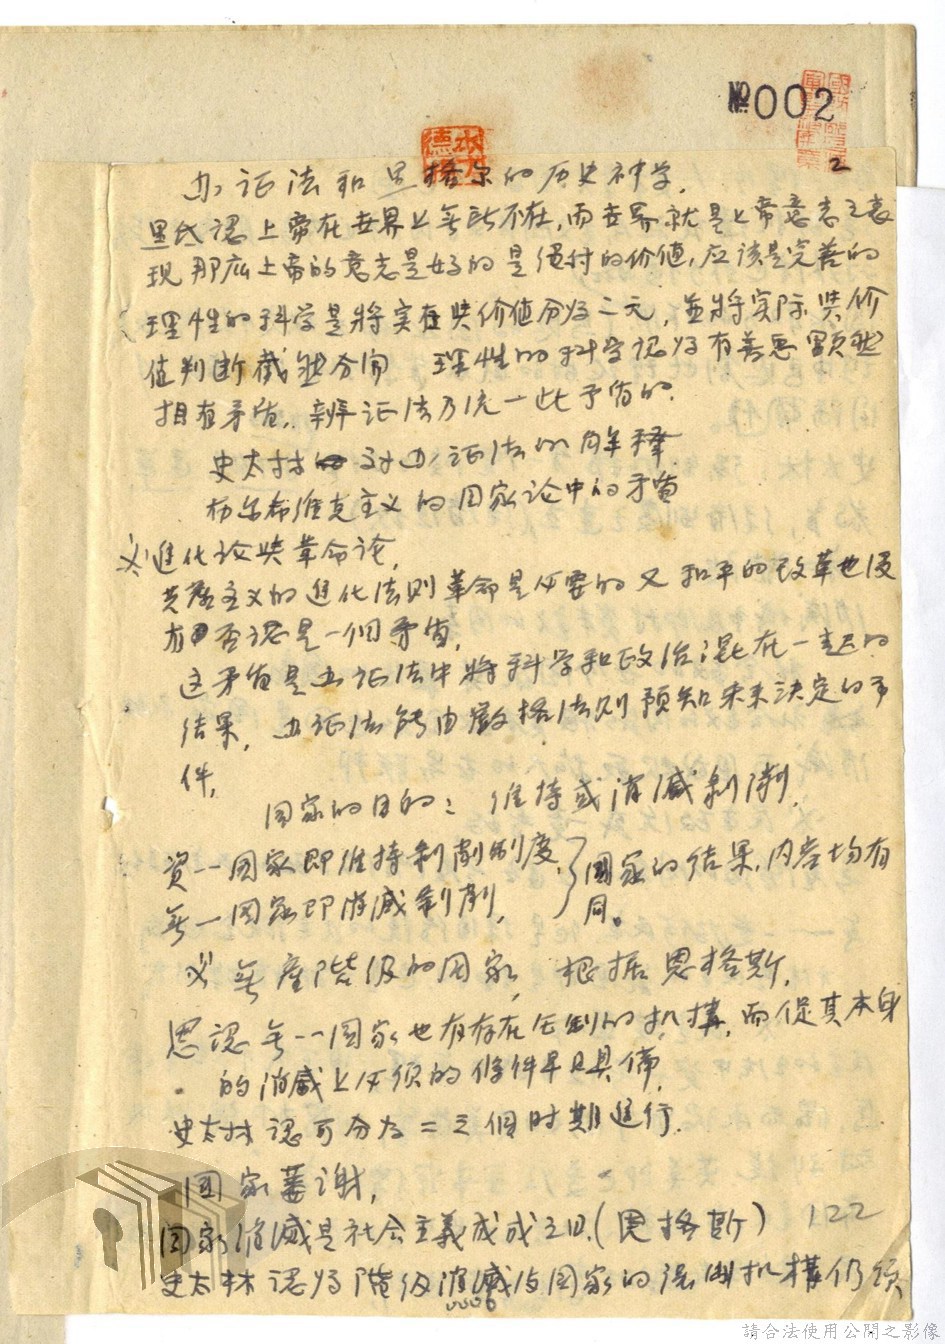 №002
2
办证法和黑格尔的历史神学.
黑氏認上帝在世界上無所不在,而世界就是上帝意志之表
現,那庅上帝的意志是好的是绝对的价值,应该是完善的
理性的科学是將实在與价值分为二元,並將实际與价
值判断截然分開 理性的科学認为有善惡 显然
相有矛盾.辨证法乃统一此予盾的.
史太林对办证法的解释
布尔希維克主义的国家论中的矛盾
進化论與革命论,
共產主义的進化法则革命是必要的又和平的改革也没
有否認是一個矛盾,
这矛盾是办证法中將科学和政治混在一起的
结果,办证法能由嚴格法则预知未来决定的
件,
国家的目的:維持或消滅剝削,
資一国家即維持剝削制度,
無一国家即消滅剝削,
国家的结果,内容均有
同。
無產階级的国家,根据恩格斯,
恩認無一国家也有存在压制的机構,而促其本身
的消滅上必须的條件早已具備,
史太林認可分为二三個时期進行.
国家萎谢,
国家消滅是社会主義成成之日.(恩格斯) 122
史太林認为階级消滅后国家的强制机構仍须
0006
請合法使用公開之影像